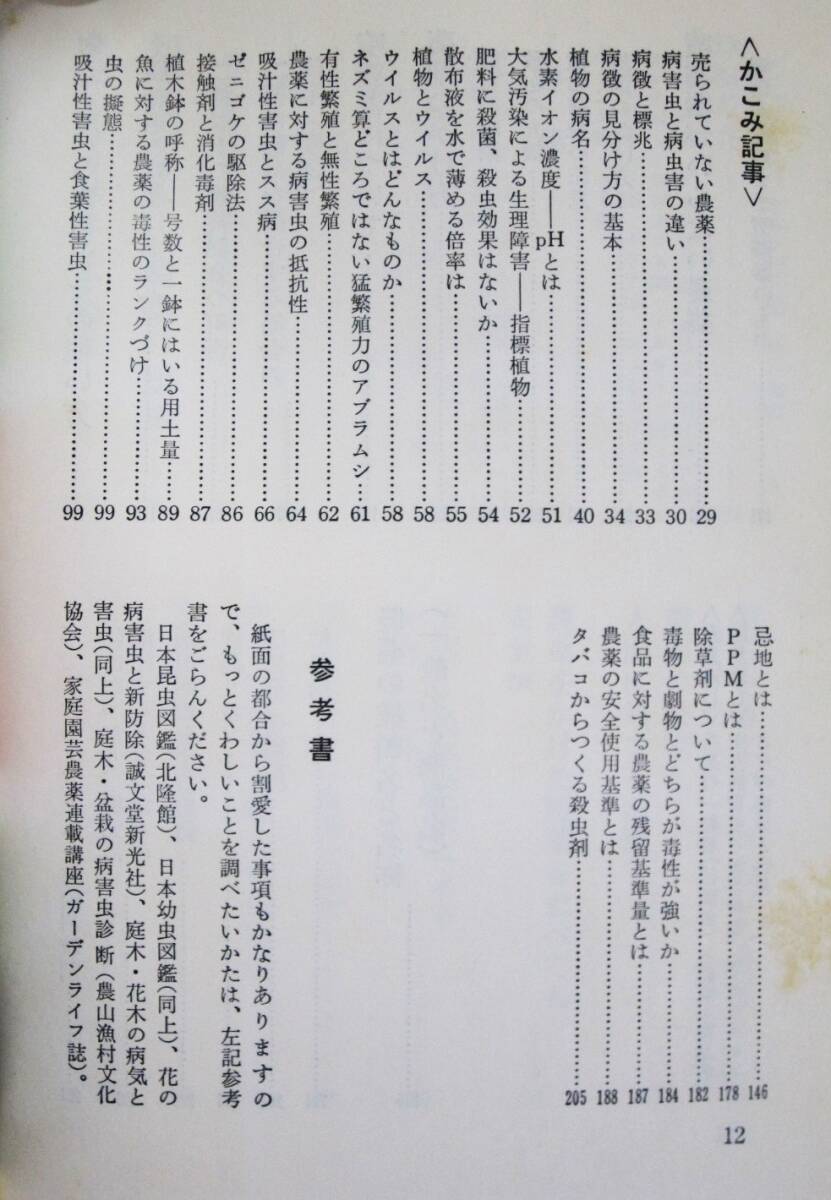 〈かこみ記事〉
売られていない農薬……………………29
病害虫と病虫害の違い……………………30
病徴と標兆……………………33
病徴の見分け方の基本……………………34
植物の病名……………………40
水素イオン濃度――pHとは……………………51
大気汚染による生理障害――指標植物……………………52
肥料に殺菌、殺虫効果はないか……………………54
散布液を水で薄める倍率は……………………55
植物とウイルス……………………58
ウイルスとはどんなものか……………………58
ネズミ算どころではない猛繁殖力のアブラムシ……61
有性繁殖と無性繁殖……………………62
農薬に対する病害虫の抵抗性……………………64
吸汁性害虫とスス病……………………66
ゼニゴケの駆除法……………………86
接触剤と消化毒剤……………………87
植木鉢の呼称――号数と一鉢にはいる用土量……89
魚に対する農薬の毒性のランクづけ……………………93
虫の擬態……………………99
吸汁性害虫と食葉性害虫……………………99
忌地とは……………………146
PPMとは……………………178
除草剤について……………………182
毒物と劇物とどちらが毒性が強いか……………………184
食品に対する農薬の残留基準量とは……………………187
農薬の安全使用基準とは……………………188
タバコからつくる殺虫剤……………………205
参考書
紙面の都合から割愛した事項もかなりありますの
で、もっとくわしいことを調べたいかたは、左記参考
書をごらんください。
日本昆虫図鑑(北隆館)、日本幼虫図鑑(同上)、花の
病害虫と新防除(誠文堂新光社)、庭木・花木の病気と
害虫(同上)、庭木・盆栽の病害虫診断(農山漁村文化
協会)、家庭園芸農薬連載講座(ガーデンライフ誌)。
12